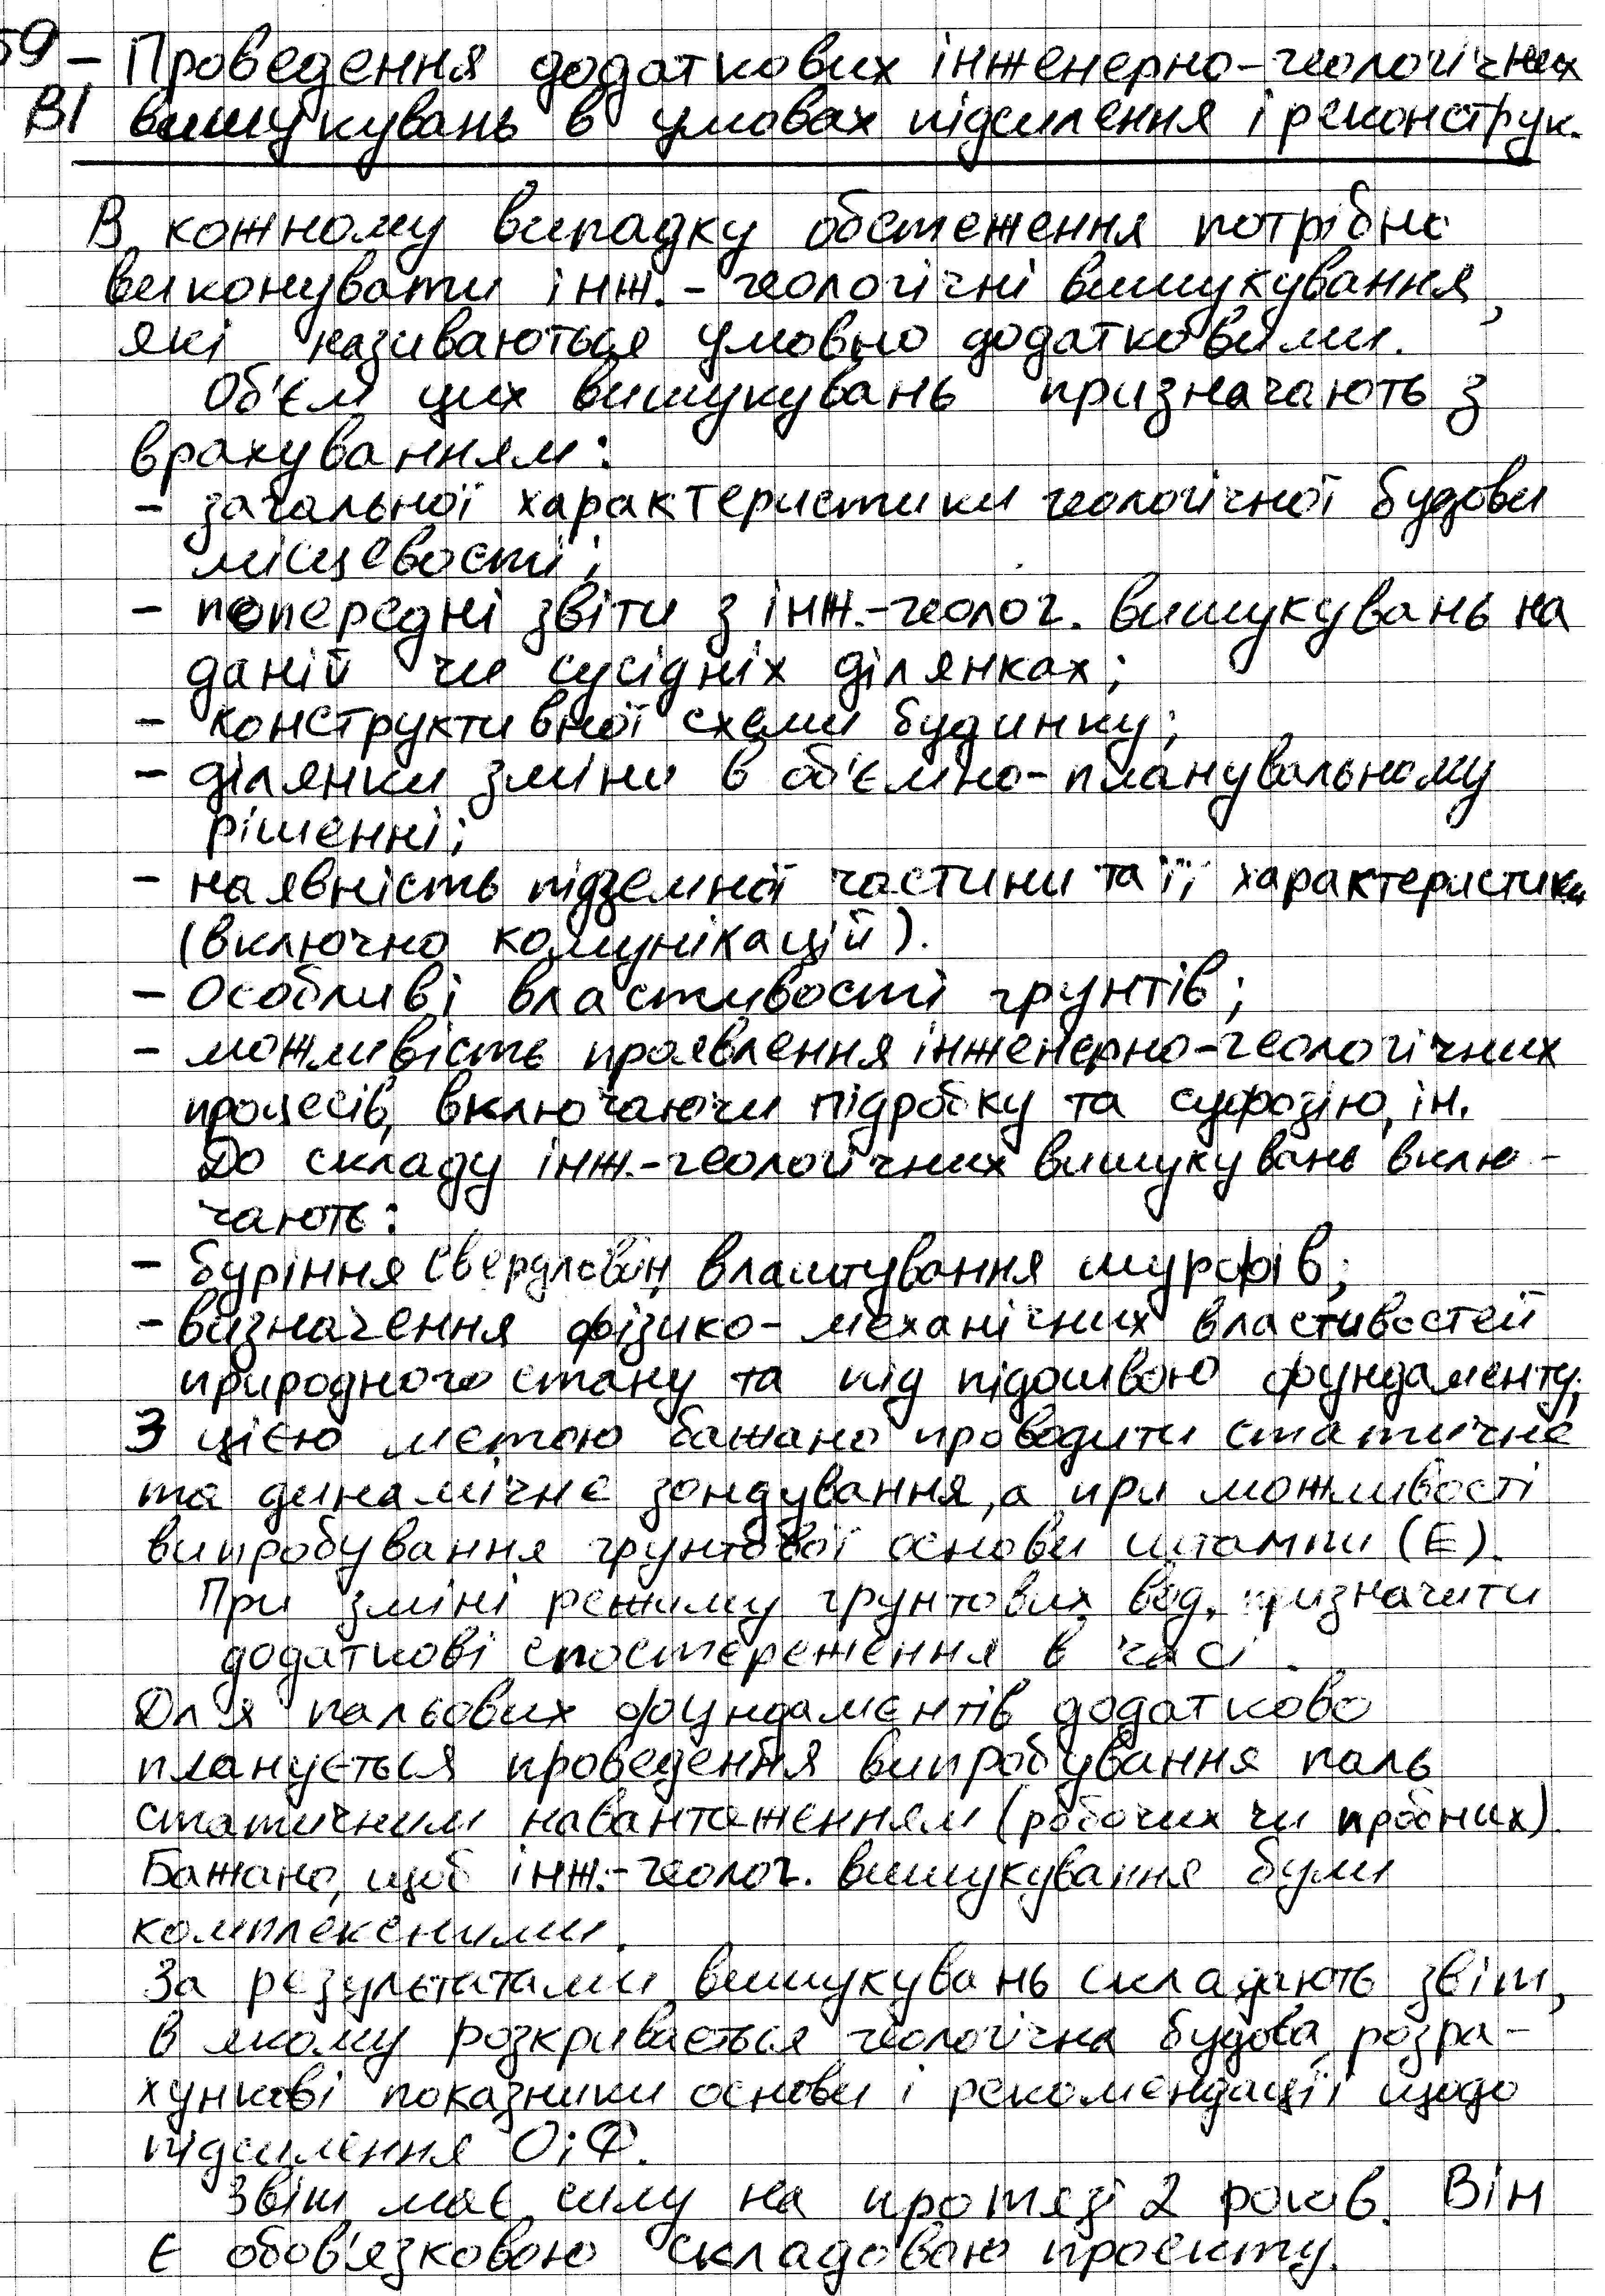 59 – Проведення додаткових інженерно-геологічних
В1 вишукувань в умовах підсилення і реконструк.
В кожному випадку обстеження потрібно
виконувати інж.-геологічні вишукування,
які називаються умовно додатковими.
Об'єм цих вишукувань призначають з
врахуванням:
- загальної характеристики геологічної будови
місцевості;
- попередні звіти з інж.-геолог. вишукувань на
даній чи сусідніх ділянках;
- конструктивної схеми будинку;
- ділянки зміни в об'ємно-планувальному
рішенні;
- наявність підземної частини та її характеристики
(включно комунікацій).
- Особливі властивості грунтів;
- можливість проявлення інженерно-геологічних
процесів, включаючи підробку та суфозію, ін.
До складу інж.-геологічних вишукувань вклю-
чають:
- буріння свердловин, влаштування шурфів;
- визначення фізико-механічних властивостей
природного стану та під підошвою фундаменту;
З цією метою бажано проводити статичне
та динамічне зондування, а при можливості
випробування грунтової основи штампи (Е).
При зміні режиму грунтових вод, призначити
додаткові спостереження в часі.
Для пальових фундаментів додатково
планується проведення випробування паль
статичним навантаженням (робочих чи пробних).
Бажано, щоб інж.-геолог. вишукування були
комплексними.
За результатами вишукувань складають звіт,
в якому розкривається геологічна будова, розра-
хункові показники основи і рекомендації щодо
підсилення О і Ф.
Звіт має силу на протязі 2 років. Він
є обов'язковою складовою проекту.